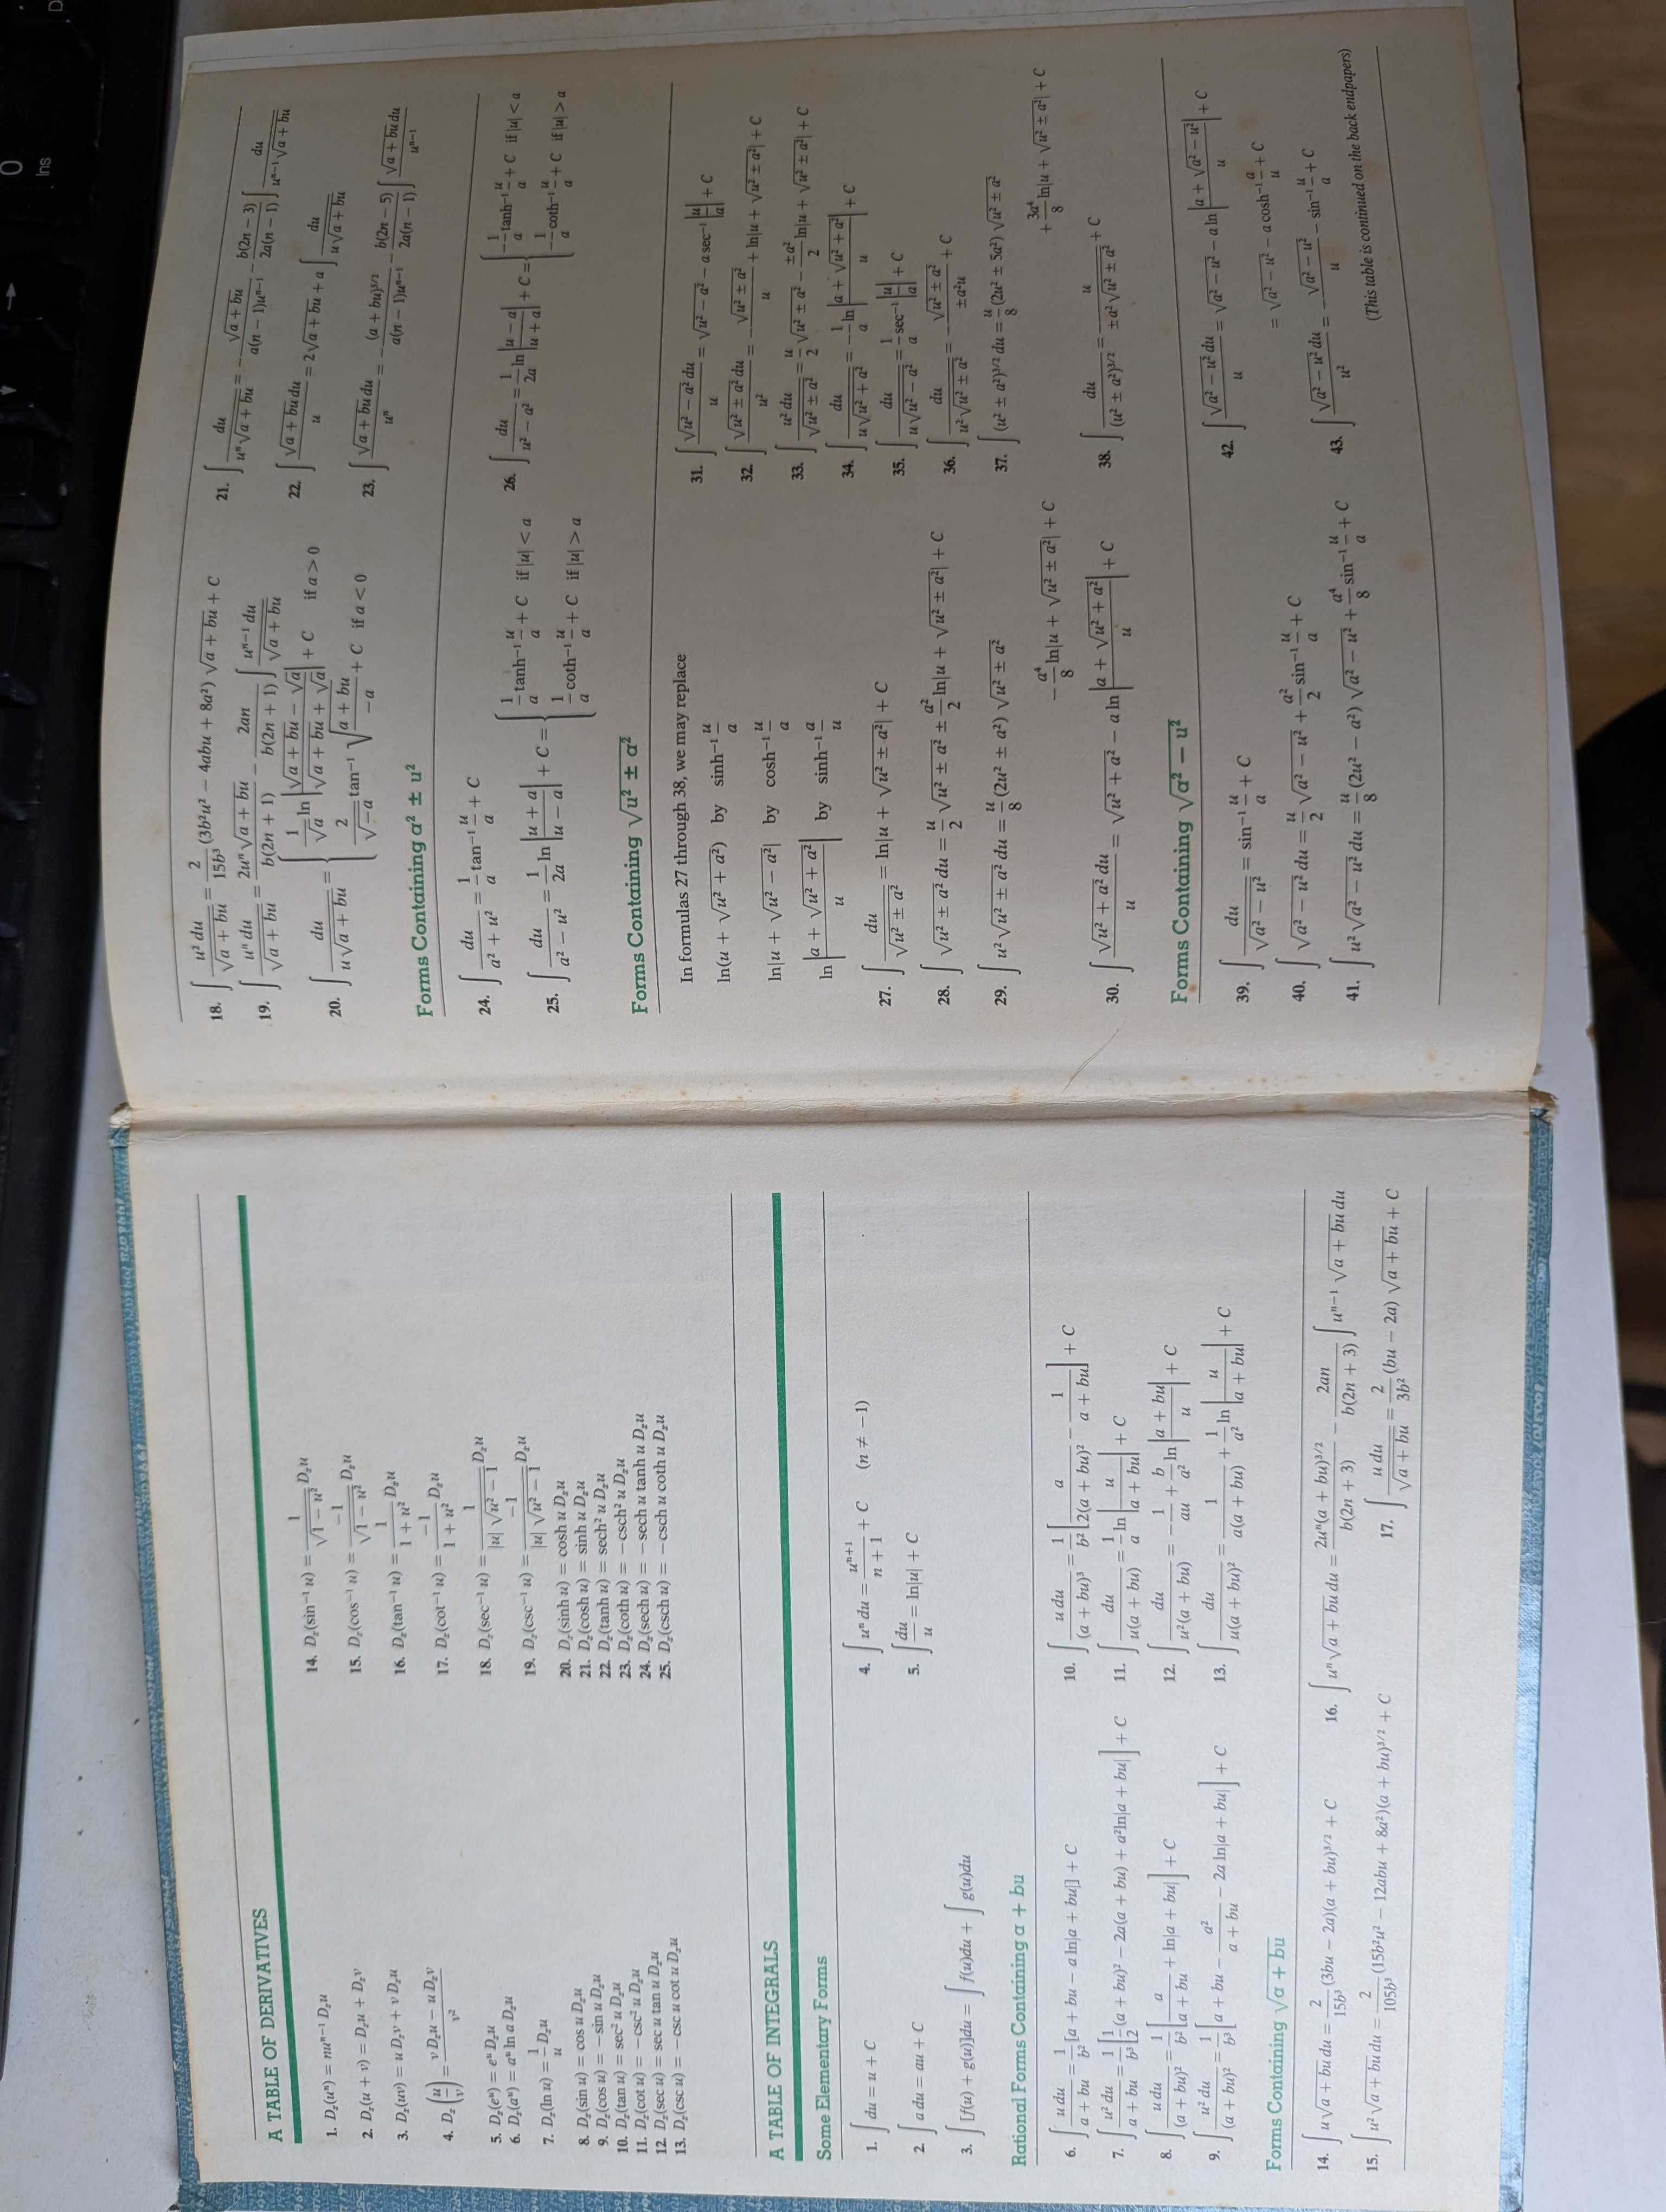 A TABLE OF DERIVATIVES
1. Dₓ(uⁿ) = nuⁿ⁻¹ Dₓu
2. Dₓ(u + v) = Dₓu + Dₓv
3. Dₓ(uv) = u Dₓv + v Dₓu
4. Dₓ(u/v) = (v Dₓu − u Dₓv)/v²
5. Dₓ(eᵘ) = eᵘ Dₓu
6. Dₓ(aᵘ) = aᵘ ln a Dₓu
7. Dₓ(ln u) = 1/u Dₓu
8. Dₓ(sin u) = cos u Dₓu
9. Dₓ(cos u) = −sin u Dₓu
10. Dₓ(tan u) = sec² u Dₓu
11. Dₓ(cot u) = −csc² u Dₓu
12. Dₓ(sec u) = sec u tan u Dₓu
13. Dₓ(csc u) = −csc u cot u Dₓu
14. Dₓ(sin⁻¹ u) = 1/√(1 − u²) Dₓu
15. Dₓ(cos⁻¹ u) = −1/√(1 − u²) Dₓu
16. Dₓ(tan⁻¹ u) = 1/(1 + u²) Dₓu
17. Dₓ(cot⁻¹ u) = −1/(1 + u²) Dₓu
18. Dₓ(sec⁻¹ u) = 1/(|u| √(u² − 1)) Dₓu
19. Dₓ(csc⁻¹ u) = −1/(|u| √(u² − 1)) Dₓu
20. Dₓ(sinh u) = cosh u Dₓu
21. Dₓ(cosh u) = sinh u Dₓu
22. Dₓ(tanh u) = sech² u Dₓu
23. Dₓ(coth u) = −csch² u Dₓu
24. Dₓ(sech u) = −sech u tanh u Dₓu
25. Dₓ(csch u) = −csch u coth u Dₓu
A TABLE OF INTEGRALS
Some Elementary Forms
1. ∫ du = u + C
2. ∫ a du = au + C
3. ∫ [f(u) + g(u)]du = ∫ f(u)du + ∫ g(u)du
4. ∫ uⁿ du = uⁿ⁺¹/(n + 1) + C (n ≠ −1)
5. ∫ du/u = ln|u| + C
Rational Forms Containing a + bu
6. ∫ u du/(a + bu) = 1/b² [a + bu − a ln|a + bu|] + C
7. ∫ u² du/(a + bu) = 1/b³ [1/2 (a + bu)² − 2a(a + bu) + a² ln|a + bu|] + C
8. ∫ u du/(a + bu)² = 1/b² [a/(a + bu) + ln|a + bu|] + C
9. ∫ u² du/(a + bu)² = 1/b³ [a + bu − a²/(a + bu) − 2a ln|a + bu|] + C
10. ∫ u du/(a + bu)³ = 1/b² [a/(2(a + bu)²) − 1/(a + bu)] + C
11. ∫ du/(u(a + bu)) = 1/a ln|u/(a + bu)| + C
12. ∫ du/(u²(a + bu)) = −1/(au) + b/a² ln|(a + bu)/u| + C
13. ∫ du/(u(a + bu)²) = 1/(a(a + bu)) + 1/a² ln|u/(a + bu)| + C
Forms Containing √(a + bu)
14. ∫ u √(a + bu) du = 2/(15b³) (3bu − 2a)(a + bu)³ᐟ² + C
15. ∫ u² √(a + bu) du = 2/(105b³) (15b²u² − 12abu + 8a²)(a + bu)³ᐟ² + C
16. ∫ uⁿ √(a + bu) du = 2uⁿ(a + bu)³ᐟ²/(b(2n + 3)) − 2an/(b(2n + 3)) ∫ uⁿ⁻¹ √(a + bu) du
17. ∫ u du/√(a + bu) = 2/(3b²) (bu − 2a) √(a + bu) + C
18. ∫ u² du/√(a + bu) = 2/(15b³) (3b²u² − 4abu + 8a²) √(a + bu) + C
19. ∫ uⁿ du/√(a + bu) = 2uⁿ √(a + bu)/(b(2n + 1)) − 2an/(b(2n + 1)) ∫ uⁿ⁻¹ du/√(a + bu)
20. ∫ du/(u√(a + bu)) = { 1/√a ln|(√(a + bu) − √a)/(√(a + bu) + √a)| + C if a > 0
2/√(−a) tan⁻¹ √((a + bu)/−a) + C if a < 0
21. ∫ du/(uⁿ√(a + bu)) = −√(a + bu)/(a(n − 1)uⁿ⁻¹) − b(2n − 3)/(2a(n − 1)) ∫ du/(uⁿ⁻¹√(a + bu))
22. ∫ √(a + bu) du/u = 2√(a + bu) + a ∫ du/(u√(a + bu))
23. ∫ √(a + bu) du/uⁿ = −(a + bu)³ᐟ²/(a(n − 1)uⁿ⁻¹) − b(2n − 5)/(2a(n − 1)) ∫ √(a + bu) du/uⁿ⁻¹
Forms Containing a² ± u²
24. ∫ du/(a² + u²) = 1/a tan⁻¹ u/a + C
25. ∫ du/(a² − u²) = 1/(2a) ln|(u + a)/(u − a)| + C = { 1/a tanh⁻¹ u/a + C if |u| < a
1/a coth⁻¹ u/a + C if |u| > a
26. ∫ du/(u² − a²) = 1/(2a) ln|(u − a)/(u + a)| + C = { −1/a tanh⁻¹ u/a + C if |u| < a
−1/a coth⁻¹ u/a + C if |u| > a
Forms Containing √(u² ± a²)
In formulas 27 through 38, we may replace
ln(u + √(u² + a²)) by sinh⁻¹ u/a
ln|u + √(u² − a²)| by cosh⁻¹ u/a
ln|(a + √(u² + a²))/u| by sinh⁻¹ a/u
27. ∫ du/√(u² ± a²) = ln|u + √(u² ± a²)| + C
28. ∫ √(u² ± a²) du = u/2 √(u² ± a²) ± a²/2 ln|u + √(u² ± a²)| + C
29. ∫ u² √(u² ± a²) du = u/8 (2u² ± a²) √(u² ± a²)
− a⁴/8 ln|u + √(u² ± a²)| + C
30. ∫ √(u² + a²) du/u = √(u² + a²) − a ln|(a + √(u² + a²))/u| + C
31. ∫ √(u² − a²) du/u = √(u² − a²) − a sec⁻¹ |u/a| + C
32. ∫ √(u² ± a²) du/u² = −√(u² ± a²)/u + ln|u + √(u² ± a²)| + C
33. ∫ u² du/√(u² ± a²) = u/2 √(u² ± a²) − ±a²/2 ln|u + √(u² ± a²)| + C
34. ∫ du/(u√(u² + a²)) = −1/a ln|(a + √(u² + a²))/u| + C
35. ∫ du/(u√(u² − a²)) = 1/a sec⁻¹ |u/a| + C
36. ∫ du/(u²√(u² ± a²)) = −√(u² ± a²)/(±a²u) + C
37. ∫ (u² ± a²)³ᐟ² du = u/8 (2u² ± 5a²) √(u² ± a²)
+ 3a⁴/8 ln|u + √(u² ± a²)| + C
38. ∫ du/(u² ± a²)³ᐟ² = u/(±a²√(u² ± a²)) + C
Forms Containing √(a² − u²)
39. ∫ du/√(a² − u²) = sin⁻¹ u/a + C
40. ∫ √(a² − u²) du = u/2 √(a² − u²) + a²/2 sin⁻¹ u/a + C
41. ∫ u² √(a² − u²) du = u/8 (2u² − a²) √(a² − u²) + a⁴/8 sin⁻¹ u/a + C
42. ∫ √(a² − u²) du/u = √(a² − u²) − a ln|(a + √(a² − u²))/u| + C
= √(a² − u²) − a cosh⁻¹ a/u + C
43. ∫ √(a² − u²) du/u² = −√(a² − u²)/u − sin⁻¹ u/a + C
(This table is continued on the back endpapers)
0
Ins
D